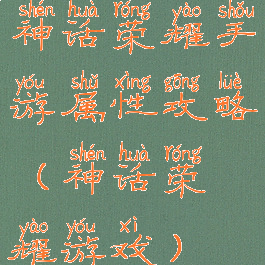 shén huà róng yào shǒu
神话荣耀手
yóu shǔ xìng gōng lüè
游属性攻略
shén huà róng
(神话荣
yào yóu xì
耀游戏)